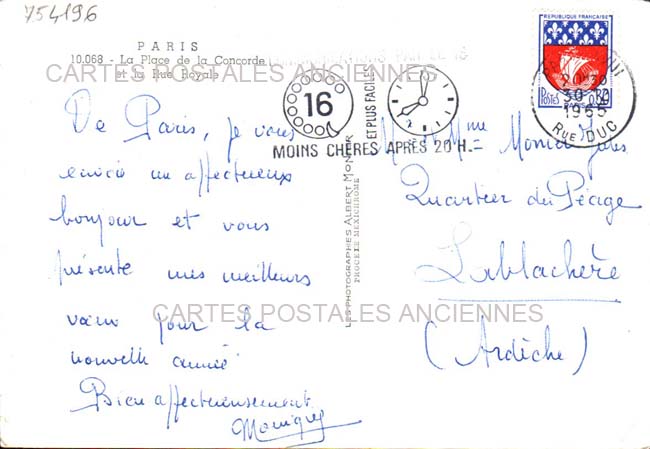 754196
PARIS
10.068 - La Place de la Concorde
et la Rue Royale
CARTES POSTALES ANCIENNES
REPUBLIQUE FRANÇAISE
POSTES 0,30
PARIS
20H30
30-12
1965
RUE DUC
16
ET PLUS FACILE
MOINS CHÈRES APRÈS 20 H.
De Paris, je vous
envoie un affectueux
bonjour et vous
présente mes meilleurs
vœux pour la
nouvelle année
Bien affectueusement
LES PHOTOGRAPHIES ALBERT MONIER
PROCÉDÉ MEXICHROME
Mr et Mme Monier
Quartier du Péage
Lablachère
(Ardèche)
CARTES POSTALES ANCIENNES